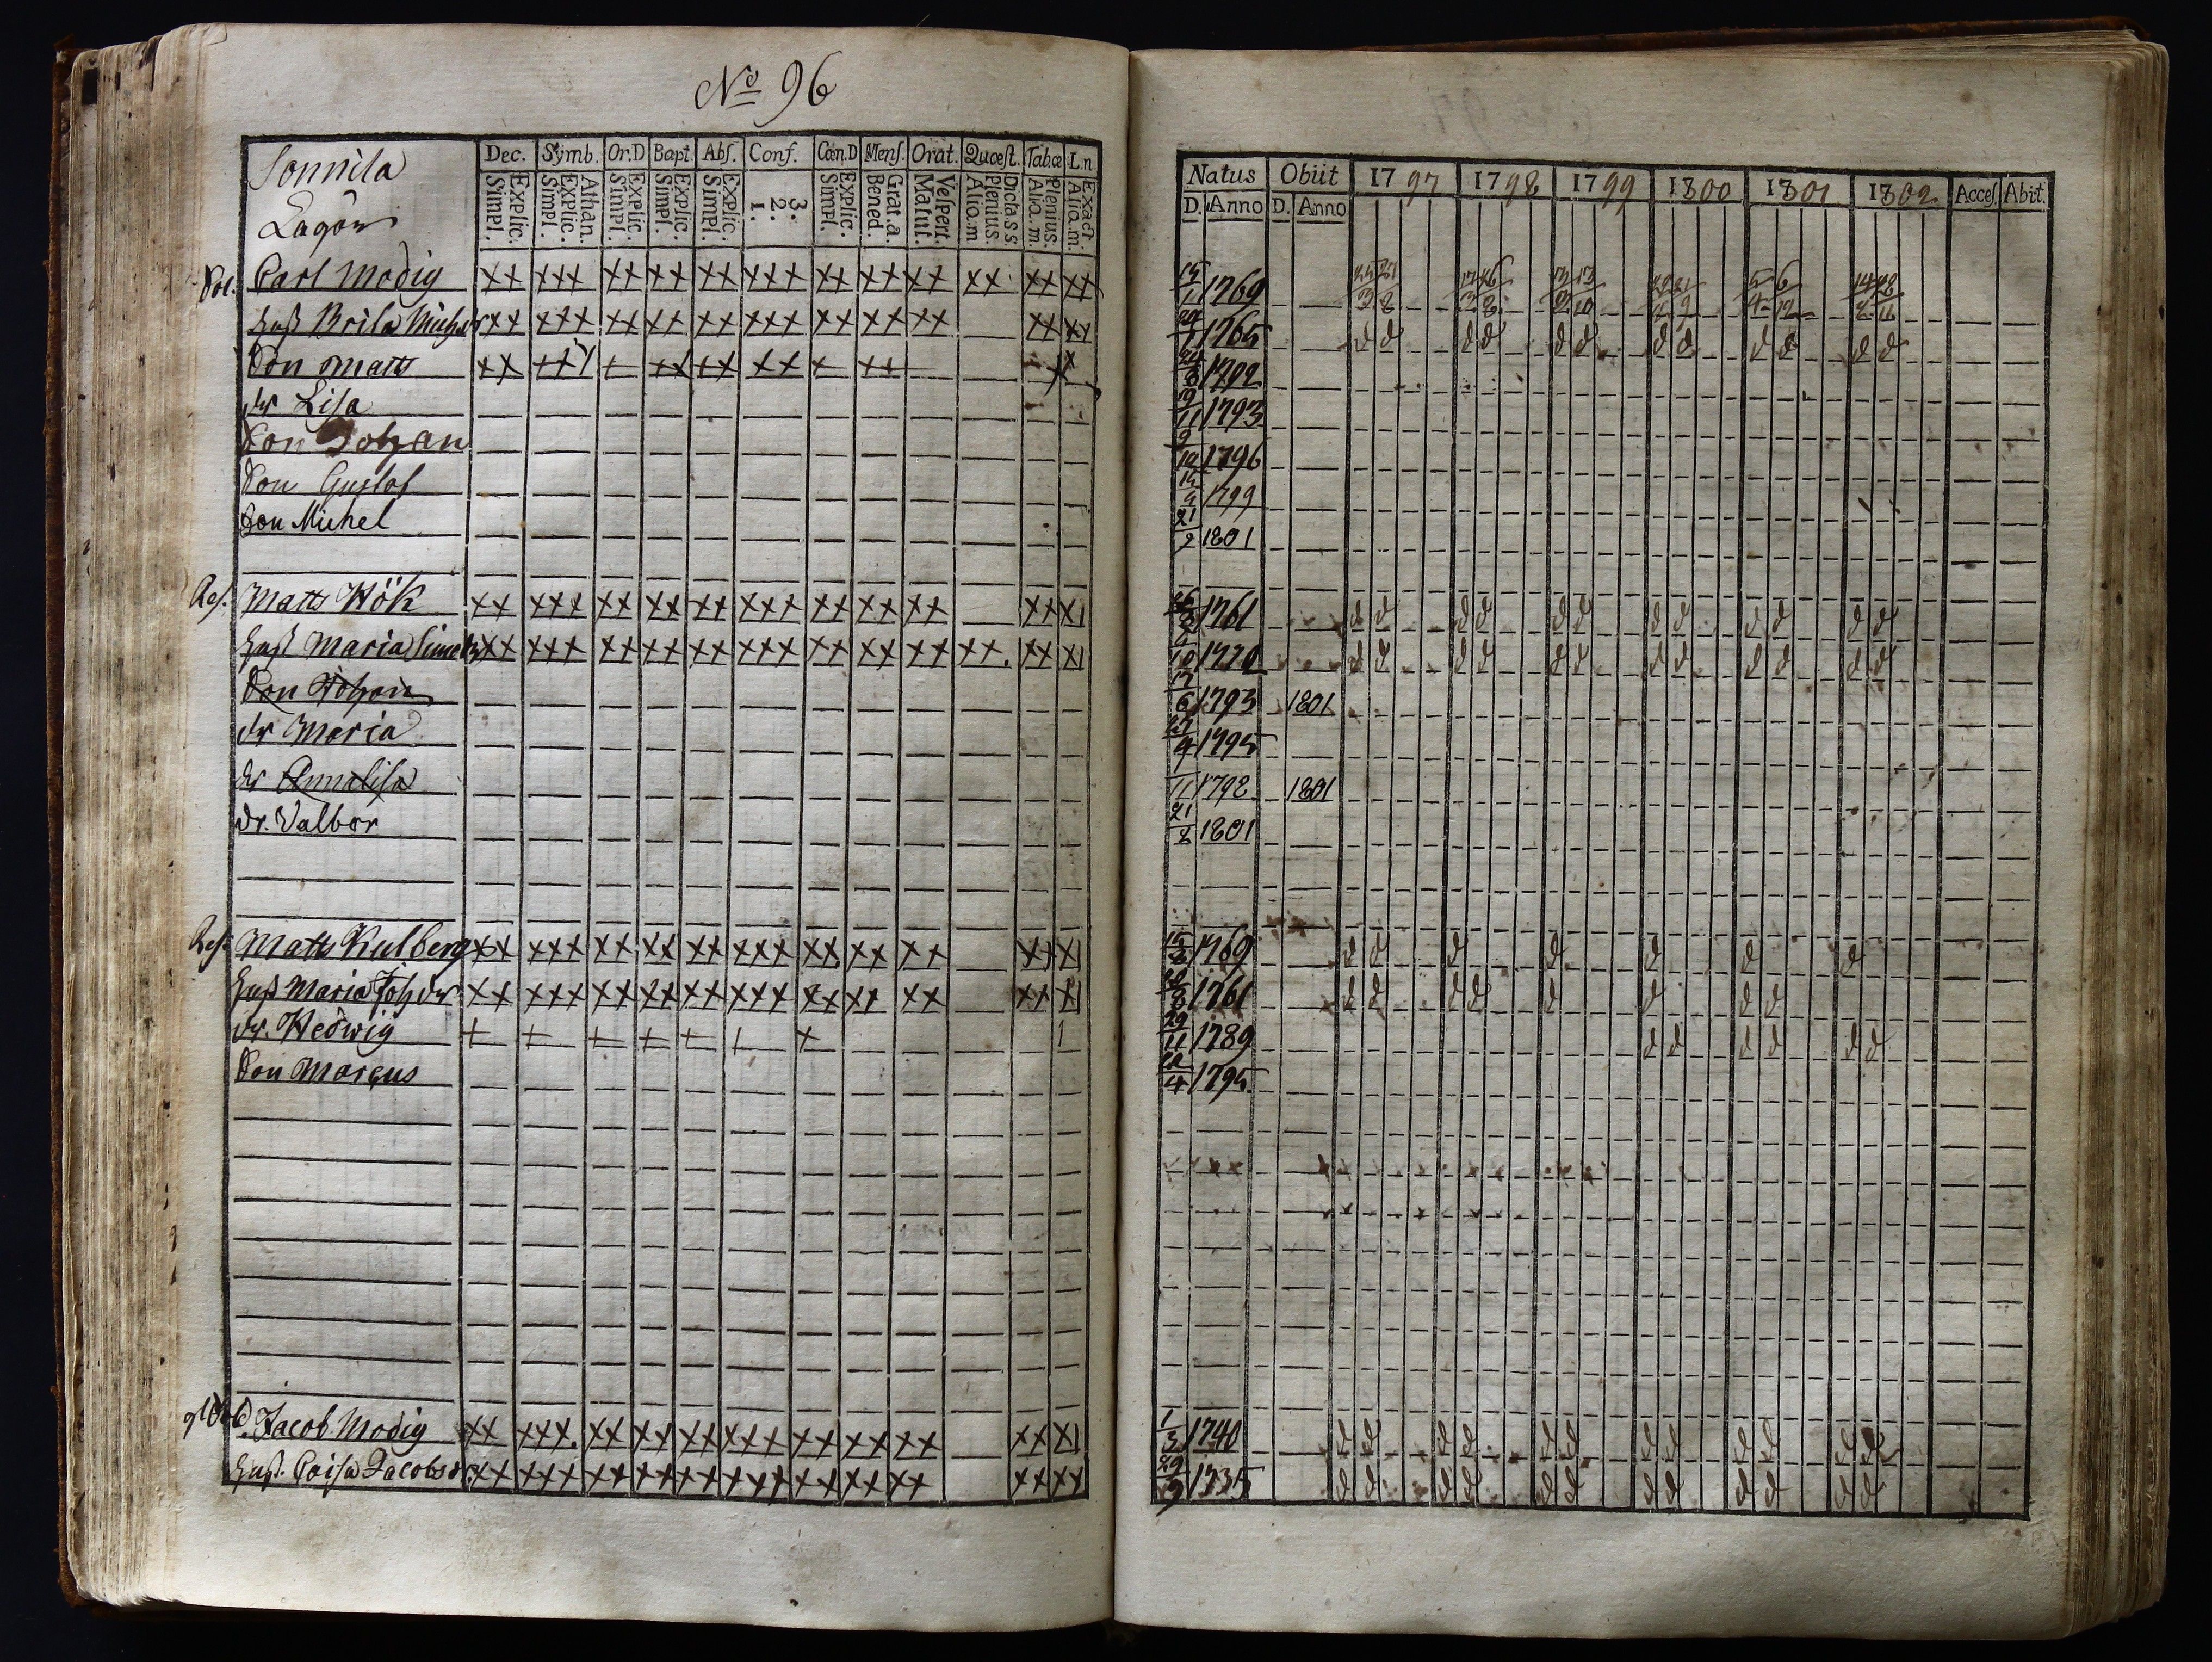 No 96
Sonnila
Lagön
Dec. Symb. Or.D Bapt. Abs. Conf. Cœn.D Mens. Orat. Quæst. Tabæ L.n.
Simpl. Explic. Simpl. Explic. Athan. Simpl. Explic. Simpl. Explic. Simpl. Explic. 1. 2. 3. Simpl. Explic. Bened. Grat. a. Matut. Vespert. Alio.m Plenius. Dicta.s.s Alio.m. Plenius. Alio.m. Exact.
Sol. Carl Modig xx xxx xx xx xx xxx xx xx xx xx xx xx
hust Brita Michelsdr xx xxx xx xx xx xxx xx xx xx xx xx
Son Matts
dr Lisa
Son Johan
Son Gustaf
Son Michel
Res. Matts Hök xx xxx xx xx xx xxx xx xx xx xx x1
hust Maria Sime xx xxx xx xx xx xxx xx xx xx xx. xx x1
Son Johan
dr Maria
dr Annalisa
dr. Valbor
Res. Matts Kulberg xx xxx xx xx xx xxx xx xx xx xx x1
hust Maria Joh dr xx xxx xx xx xx xxx xx xx xx xx x1
dr. Hedwig
Son Marcus
Jacob Modig xx xxx xx xx xx xxx xx xx xx xx x1
hust. Caisa Jacobsdr xx xxx xx xx xx xxx xx xx xx xx xx
Natus Obiit 1797 1798 1799 1800 1801 1802 Acces. Abit.
D. Anno D. Anno
1769
1765 d d d d d d d d d d d d
1792
19/11 1793
9/10 1796
1799
21/2 1801
1761 d d d d d d d d d d d d
1770 d d d d d d d d d d d d
17/6 1793 1801
1795
1/11 1798 1801
21/2 1801
1769 d d d d d d d
1761 d d d d d d d d
29/11 1789 d d d d d d
1795
1/3 1740 d d d d d d d d d d d d
29/9 1735 d d d d d d d d d d d d